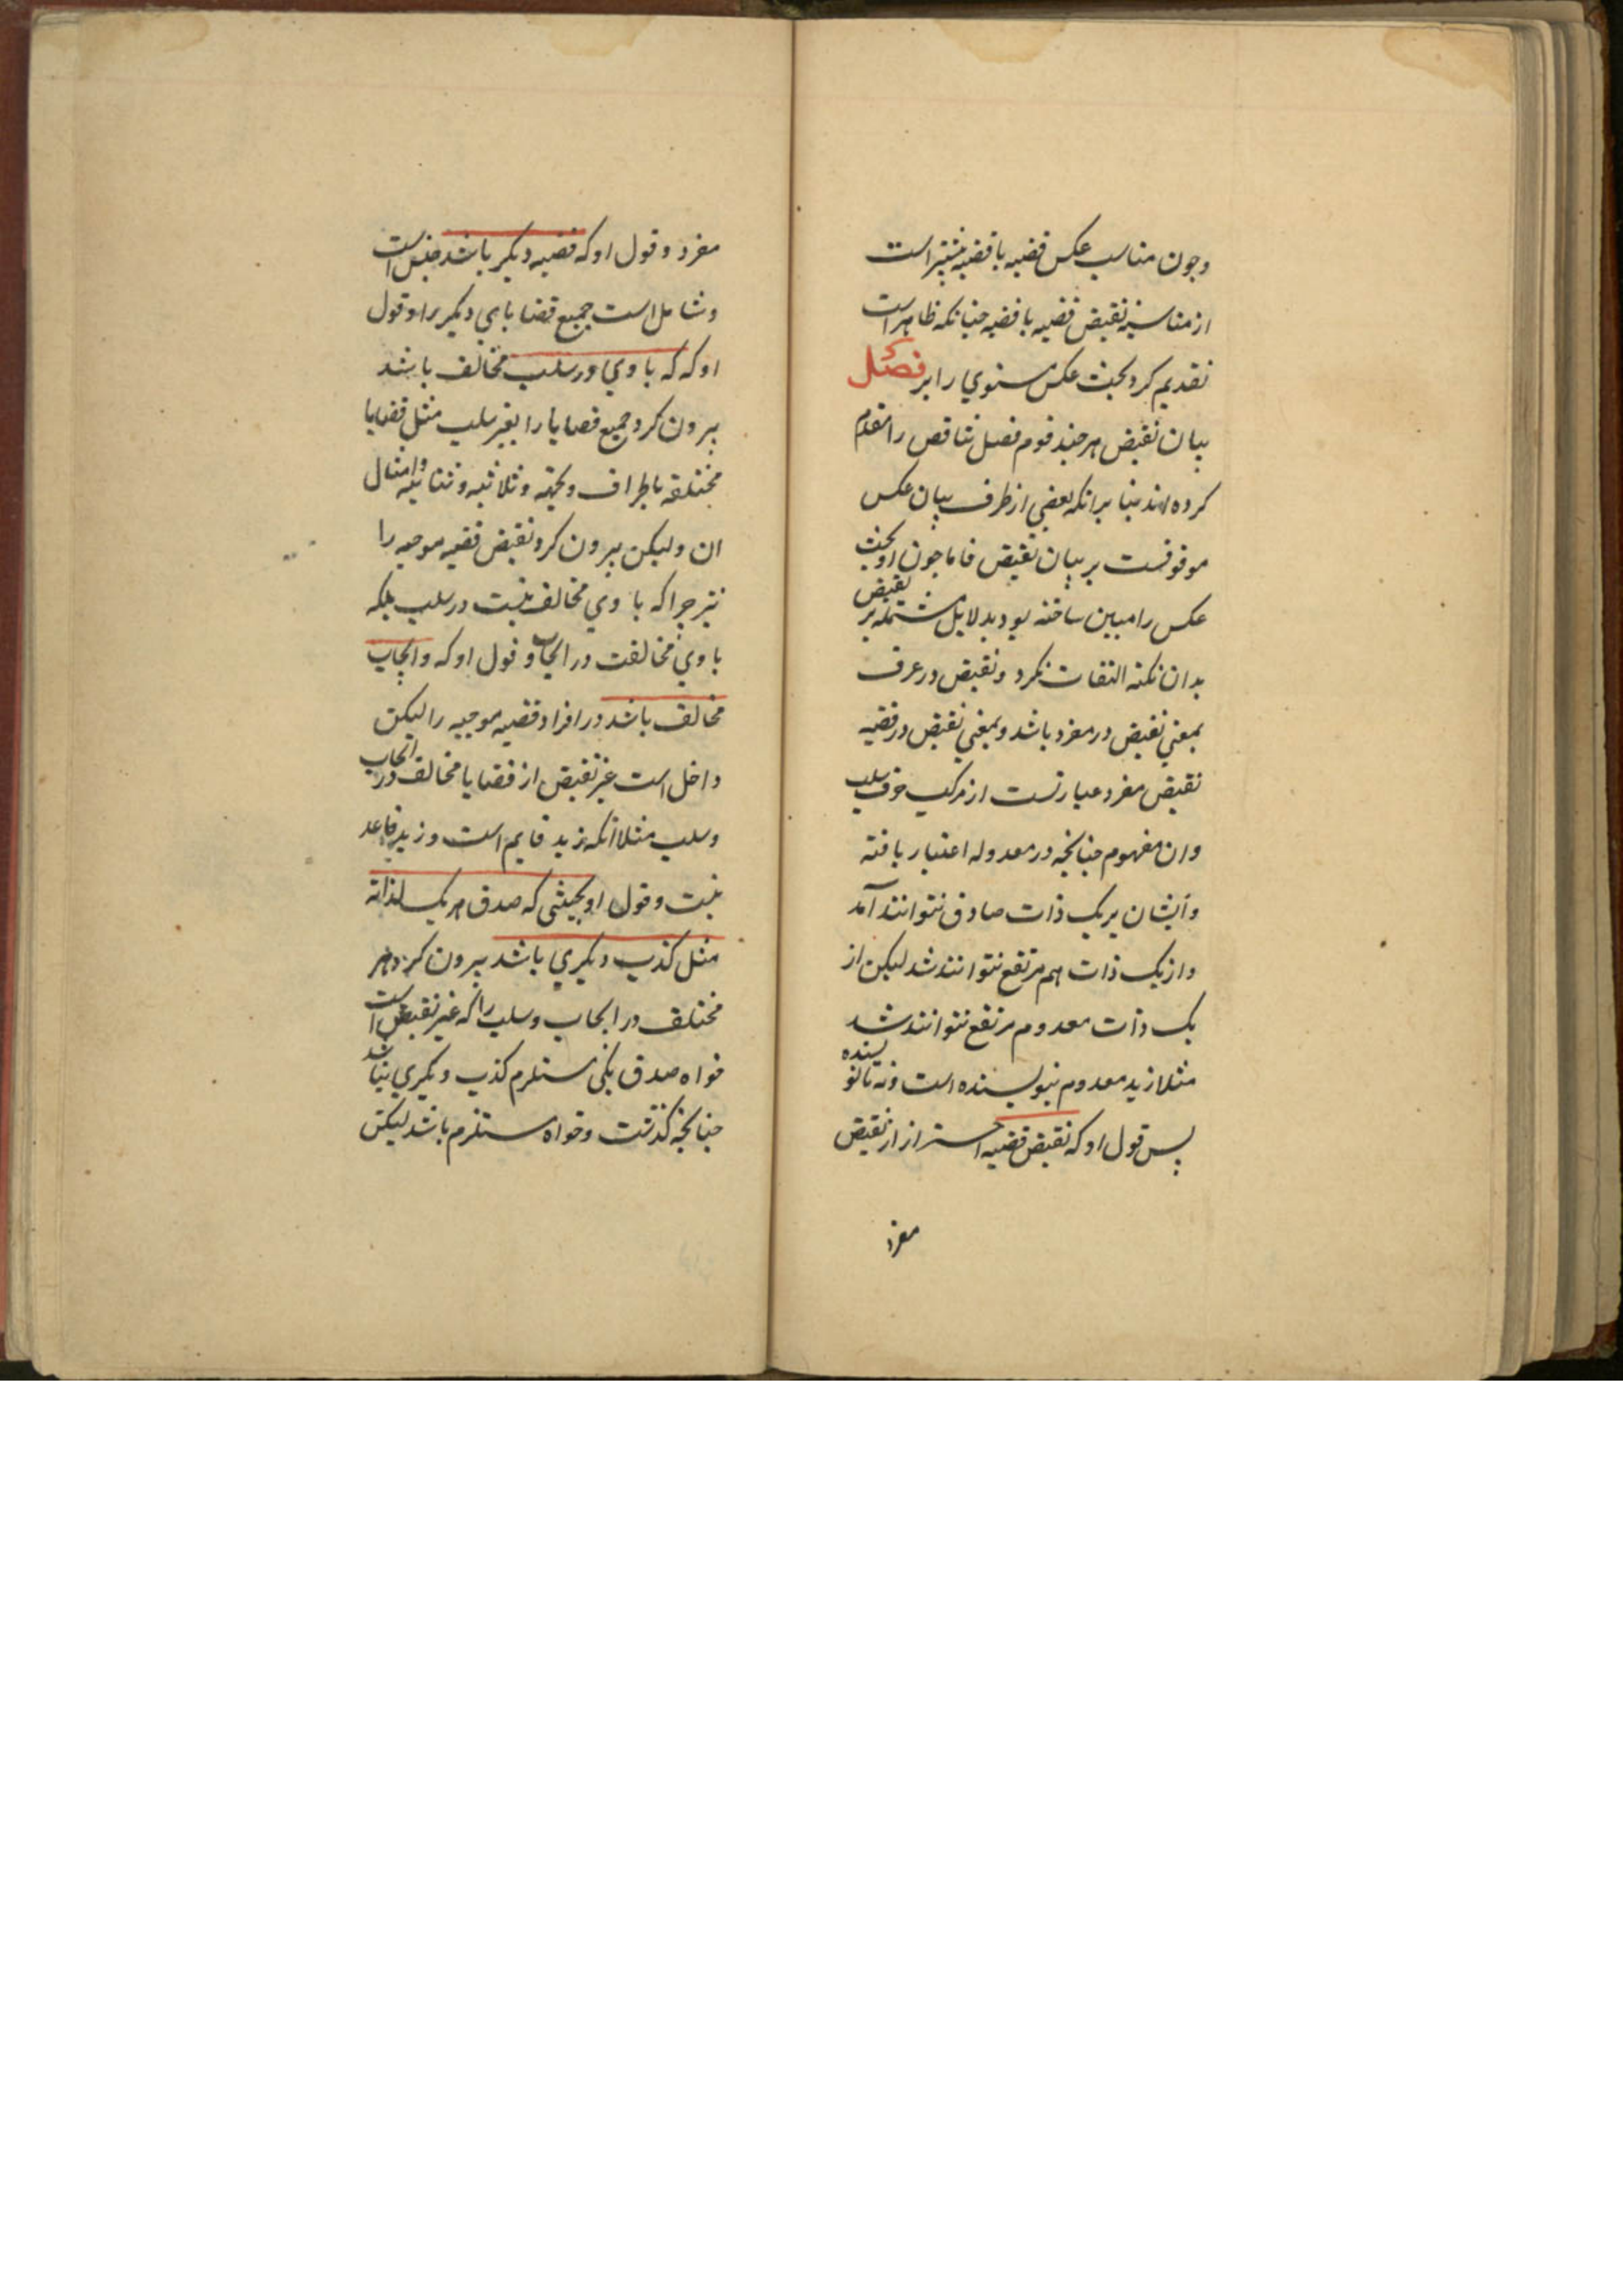 وجون مناسب عکس قضیه با قضیه بیشتر است
از مناسبه نقیض قضیه با قضیه چنانکه ظاهر است
تقدیم کرد بحث عکس مستوی را بر فصل
بیان نقیض هر چند قوم فصل تناقض را مقدم
کرده اند بنا برانکه بعضی از طرف بیان عکس
موقوفست بر بیان نقیض فاما جون او بحث
عکس را مبین ساخته بود بدلایل مشتمله بر نقیض
بدان نکته التفات نکرد و نقیض در عرف
بمعنی نقیض در مفرد باشد و بمعنی نقیض در قضیه
نقیض مفرد عبارتست از مرکب حرف سلب
وان مفهوم چنانچه در معدوله اعتبار یافته
وایشان بر یک ذات صادق نتوانند آمد
واز یک ذات هم مرتفع نتوانند شد لیکن از
یک ذات معدوم مرتفع نتوانند شد
مثلا زید معدوم نیولیسنده است ونه نانویسنده
پس قول او که نقیض قضیه احتراز از نقیض
مفرد
مفرد وقول او که قضیه دیگر باشد جنس است
وشامل است جمیع قضایای دیگر را وقول
او که که با وی در سلب مخالف باشد
بیرون کرد جمیع قضایا را بغیر سلب مثل قضایا
مختلفه باطراف وبجهة وثلاثیه وثنائیه وامثال
ان ولیکن بیرون کرد نقیض قضیه موجبه را
نیز چرا که با وی مخالف نیست در سلب بلکه
با وی مخالفت در ایجاب وقول او که وایجاب
مخالف باشد در افراد قضیه موجبه را لیکن
داخل است غیر نقیض از قضایا مخالف در ایجاب
وسلب مثلا انکه زید قایم است وزید قاعد
نیست وقول او بحیثی که صدق هر یک لذاته
مثل کذب دیکری باشد بیرون کرد هر
مختلف در ایجاب وسلب را که غیر نقیض است
خواه صدق یکی مستلزم کذب دیکری نباشد
چنانچه گذشت وخواه مستلزم باشد لیکن